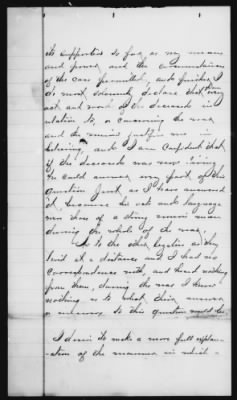 its supporters so far as my means
and power, and the circumstances
of the case permitted, and further I
do most solemnly declare that every
act and word of the deceased in
relation to, or concerning the war
and the union justifies me in
believing, and I am confident that
if the deceased was now living
he could answer my part of this
question just as I have answered
it, because his acts and language
was those of a strong union man
during the whole of the war.
As to the other legatees as they
lived at a distance and I had no
correspondence with, and heard nothing
from them, during the war I know
nothing as to what their answer
or answers to this question would be.
I desire to make a more full explan-
-ation of the manner in which